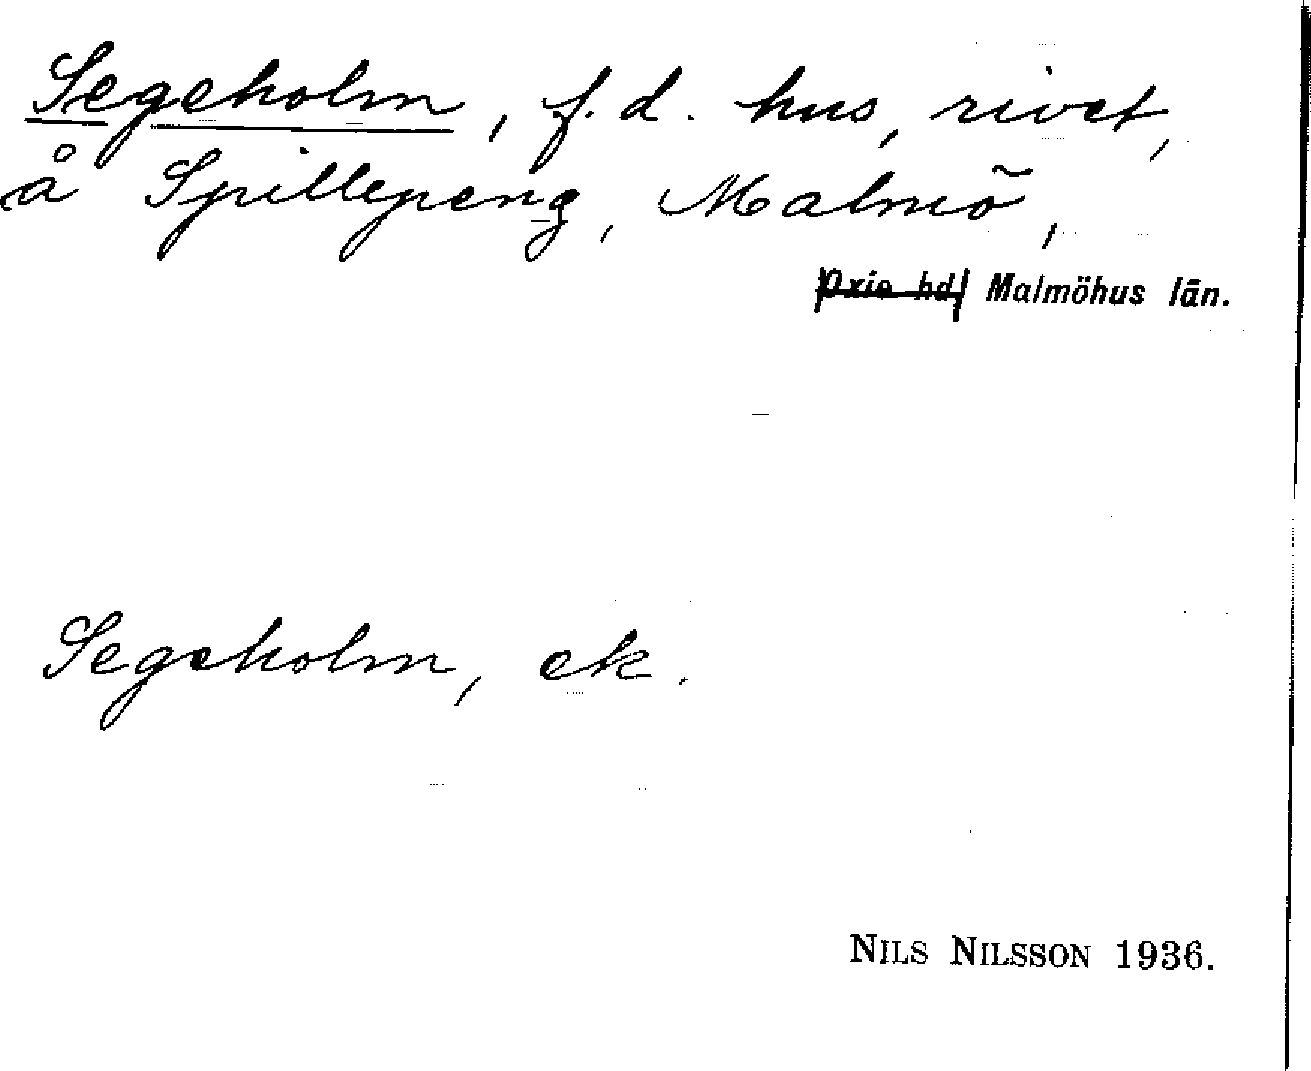 Segeholm, f. d. hus, rivet,
å Spillepeng, Malmö,
Oxie hd, Malmöhus län.
Segeholm, ek.
NILS NILSSON 1936.